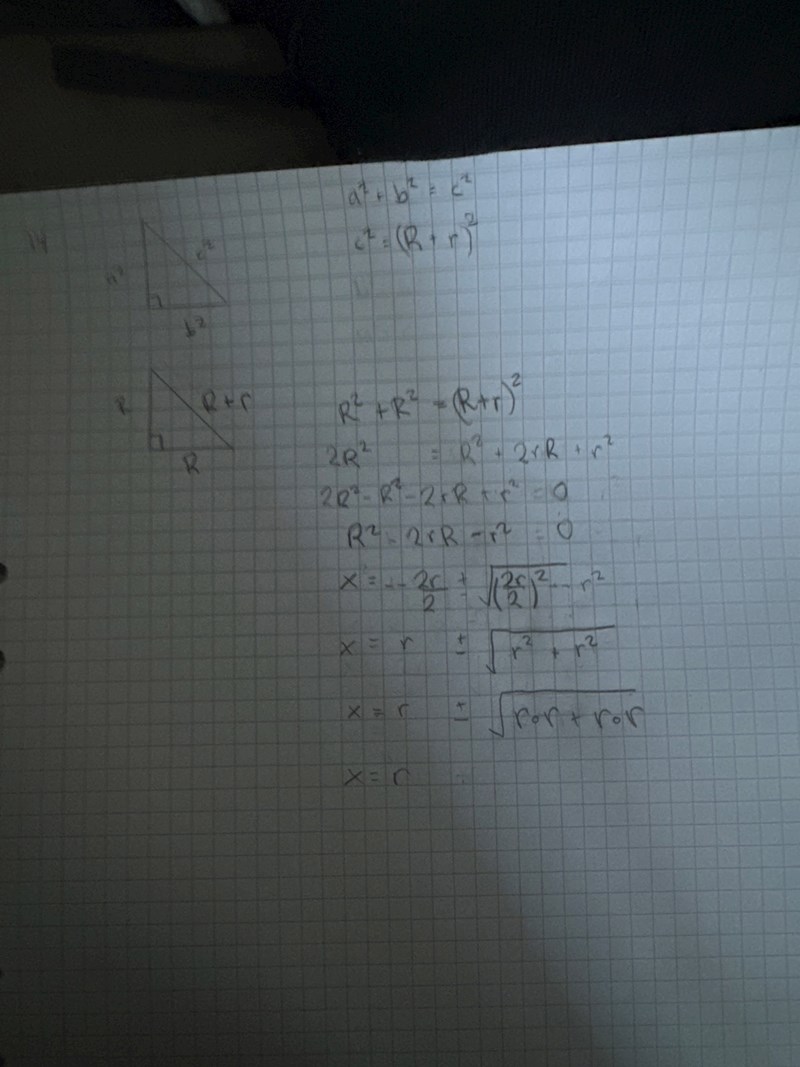 a² + b² = c²
14
c² = (R + r)²
a²
c²
b²
R
R+r
R
R² + R² = (R+r)²
2R² = R² + 2rR + r²
2R² - R² - 2rR + r² = 0
R² - 2rR - r² = 0
x = - -2r/2 ± √(2r/2)² - - r²
x = r ± √r² + r²
x = r ± √r∘r + r∘r
x = r